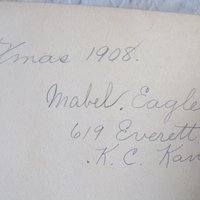 Xmas 1908.
Mabel. Eagle
619 Everett
K. C. Kan